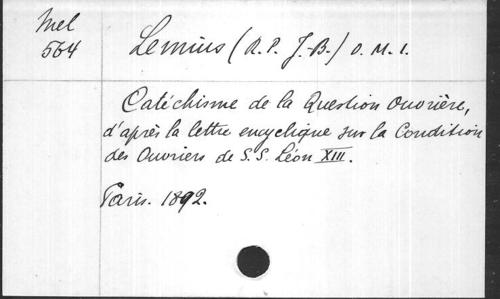 Mel
564
Lemius (R. P. J. B.) O. M. I.
Catéchisme de la Question Ouvrière,
d'après la lettre encyclique sur la Condition
des Ouvriers de S. S. Léon XIII.
Paris. 1892.